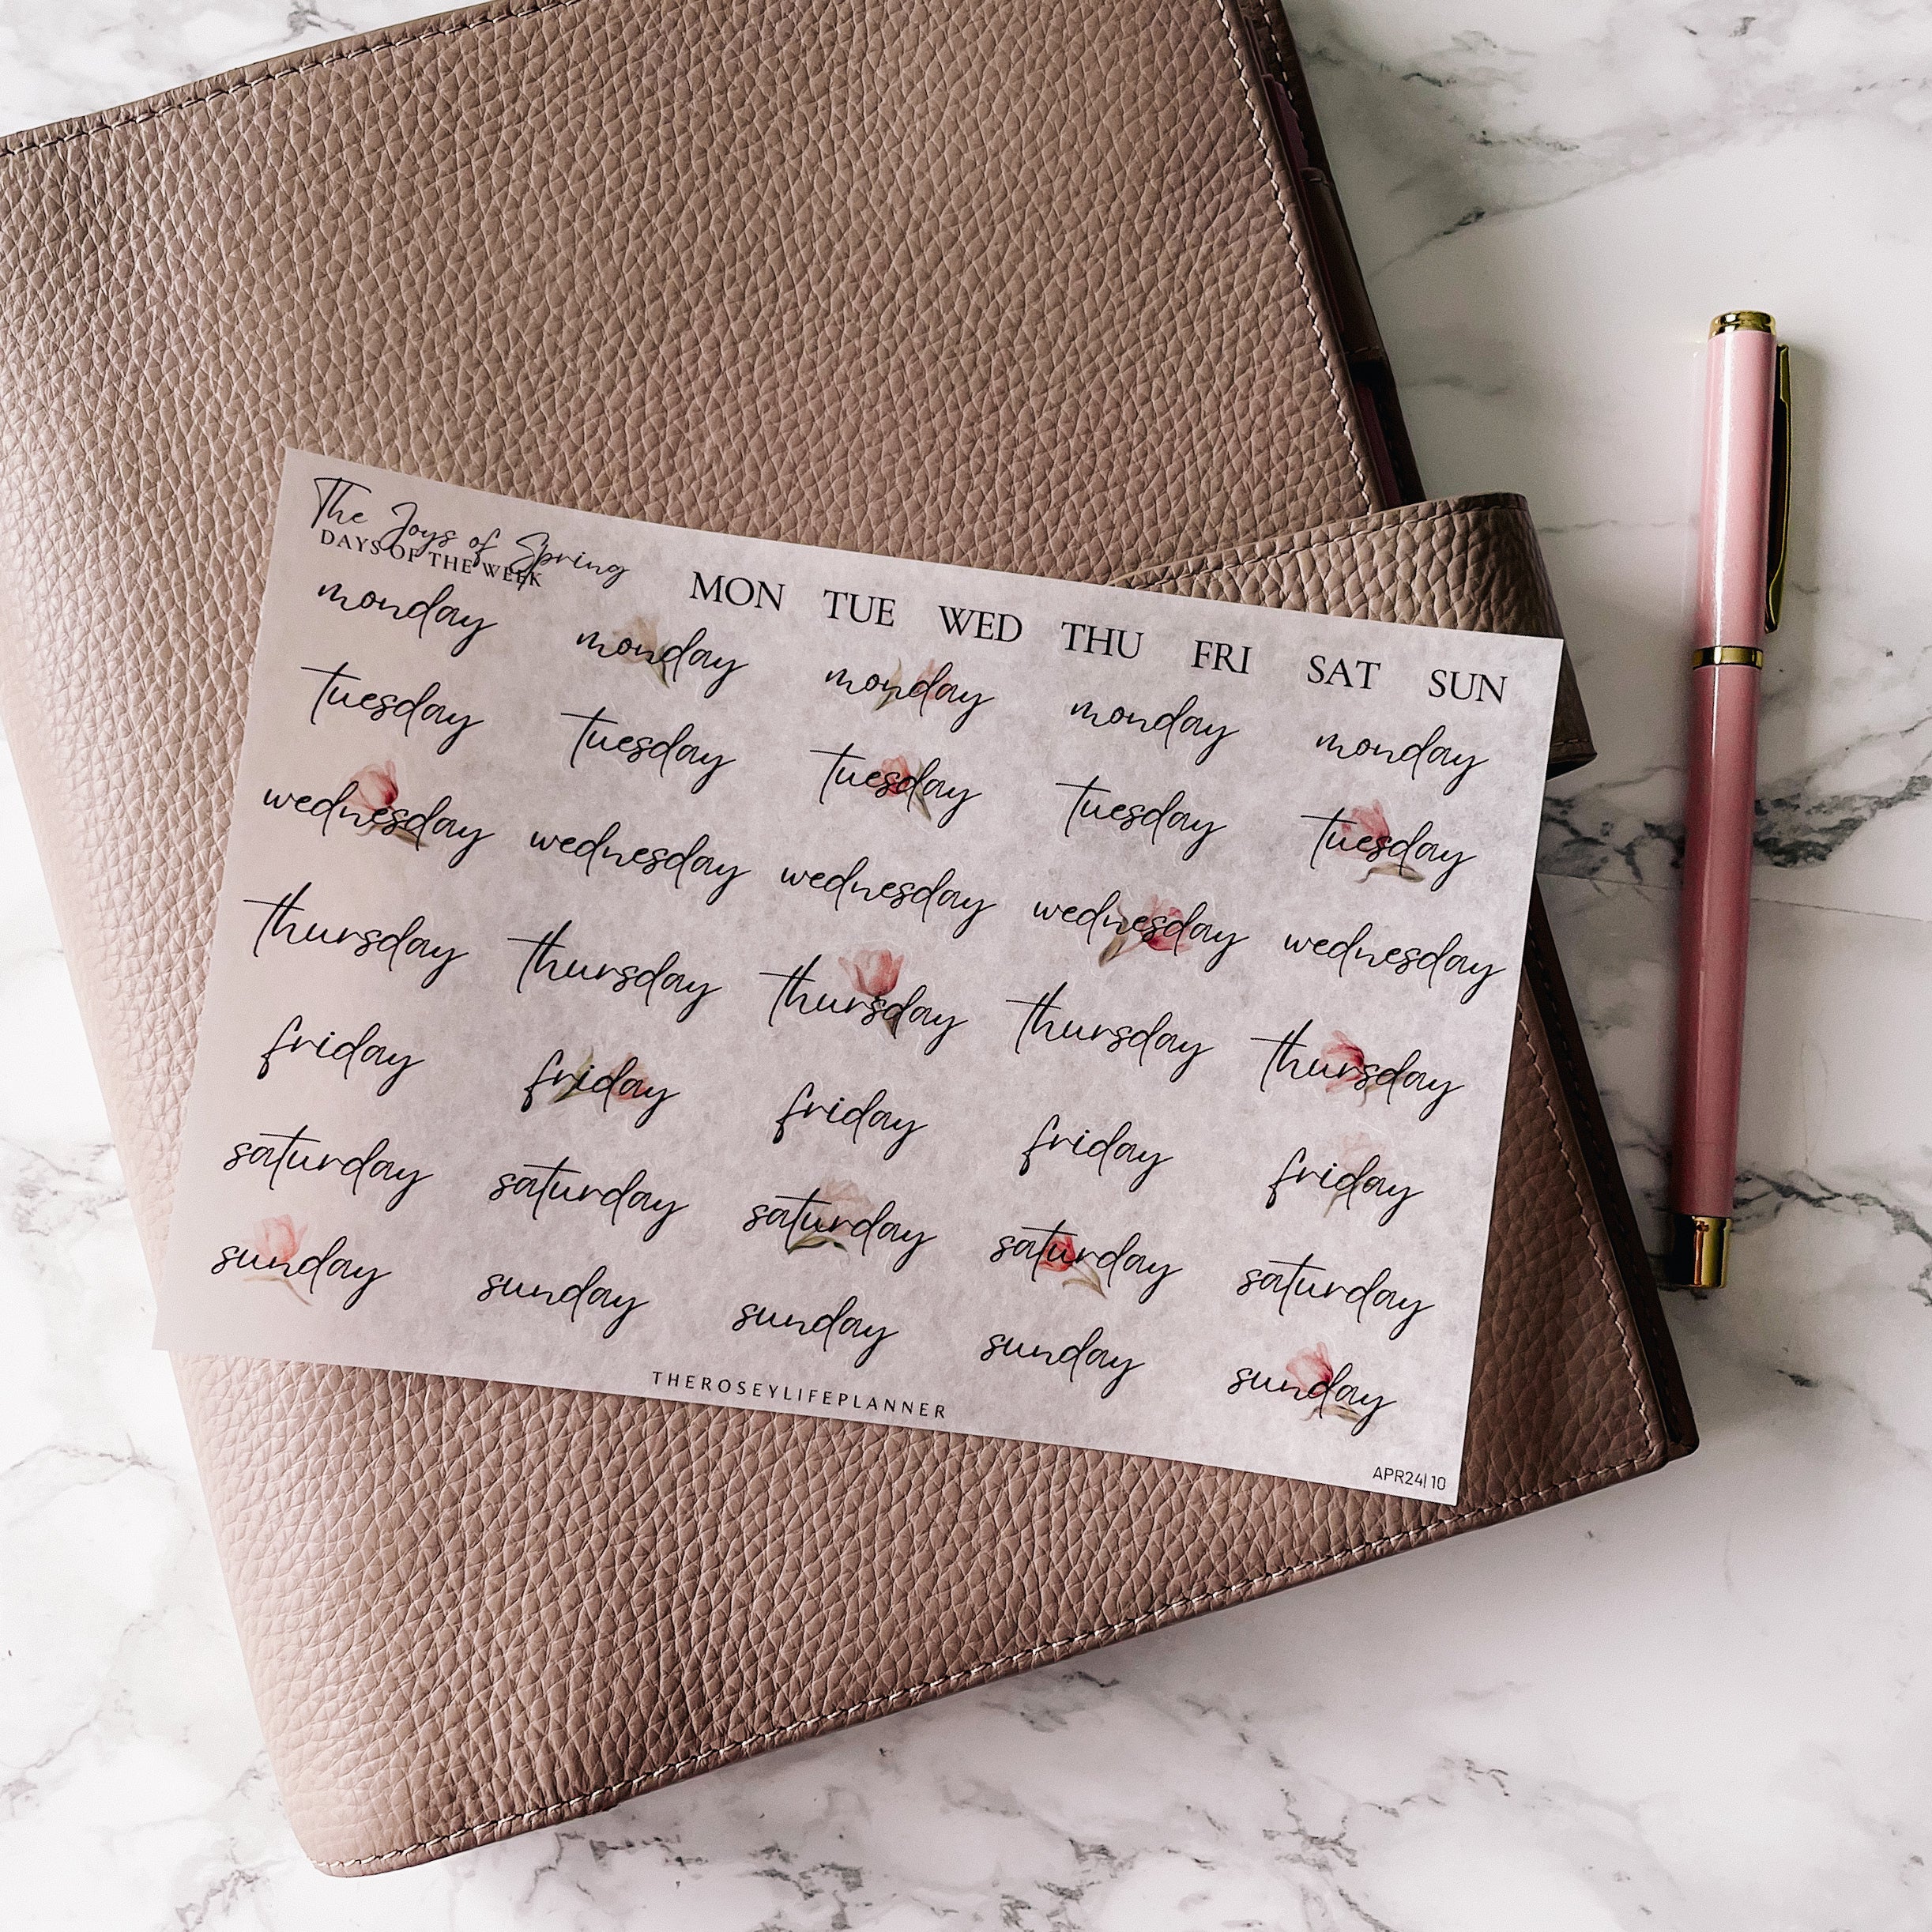 The Joys of Spring
DAYS OF THE WEEK
MON TUE WED THU FRI SAT SUN
monday monday monday monday monday
tuesday tuesday tuesday tuesday tuesday
wednesday wednesday wednesday wednesday wednesday
thursday thursday thursday thursday thursday
friday friday friday friday friday
saturday saturday saturday saturday saturday
sunday sunday sunday sunday sunday
THEROSEYLIFEPLANNER
APR24|10